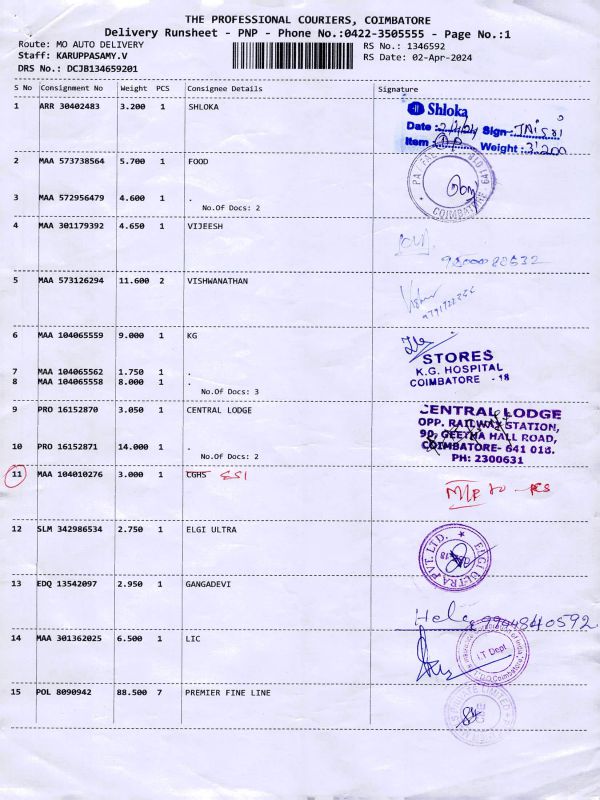 THE PROFESSIONAL COURIERS, COIMBATORE
Delivery Runsheet - PNP - Phone No.:0422-3505555 - Page No.:1
Route: MO AUTO DELIVERY RS No.: 1346592
Staff: KARUPPASAMY.V RS Date: 02-Apr-2024
DRS No.: DCJB134659201
S No Consignment No Weight PCS Consignee Details Signature
1 ARR 30402483 3.200 1 SHLOKA
Shloka
Date: 2/4/24 Sign:
Item Weight: 3.200
2 MAA 573738564 5.700 1 FOOD
3 MAA 572956479 4.600 1 .
No.Of Docs: 2
COIMBATORE
4 MAA 301179392 4.650 1 VIJEESH
5 MAA 573126294 11.600 2 VISHWANATHAN
6 MAA 104065559 9.000 1 KG
STORES
K.G. HOSPITAL
COIMBATORE - 18
7 MAA 104065562 1.750 1 .
8 MAA 104065558 8.000 1 .
No.Of Docs: 3
9 PRO 16152870 3.050 1 CENTRAL LODGE
CENTRAL LODGE
OPP. RAILWAY STATION,
90, GEETHA HALL ROAD,
COIMBATORE- 641 018.
PH: 2300631
10 PRO 16152871 14.000 1 .
No.Of Docs: 2
11 MAA 104010276 3.000 1 CGHS ESI
12 SLM 342986534 2.750 1 ELGI ULTRA
ELGI ULTRA PVT. LTD.
13 EDQ 13542097 2.950 1 GANGADEVI
14 MAA 301362025 6.500 1 LIC
I.T Dept
15 POL 8090942 88.500 7 PREMIER FINE LINE